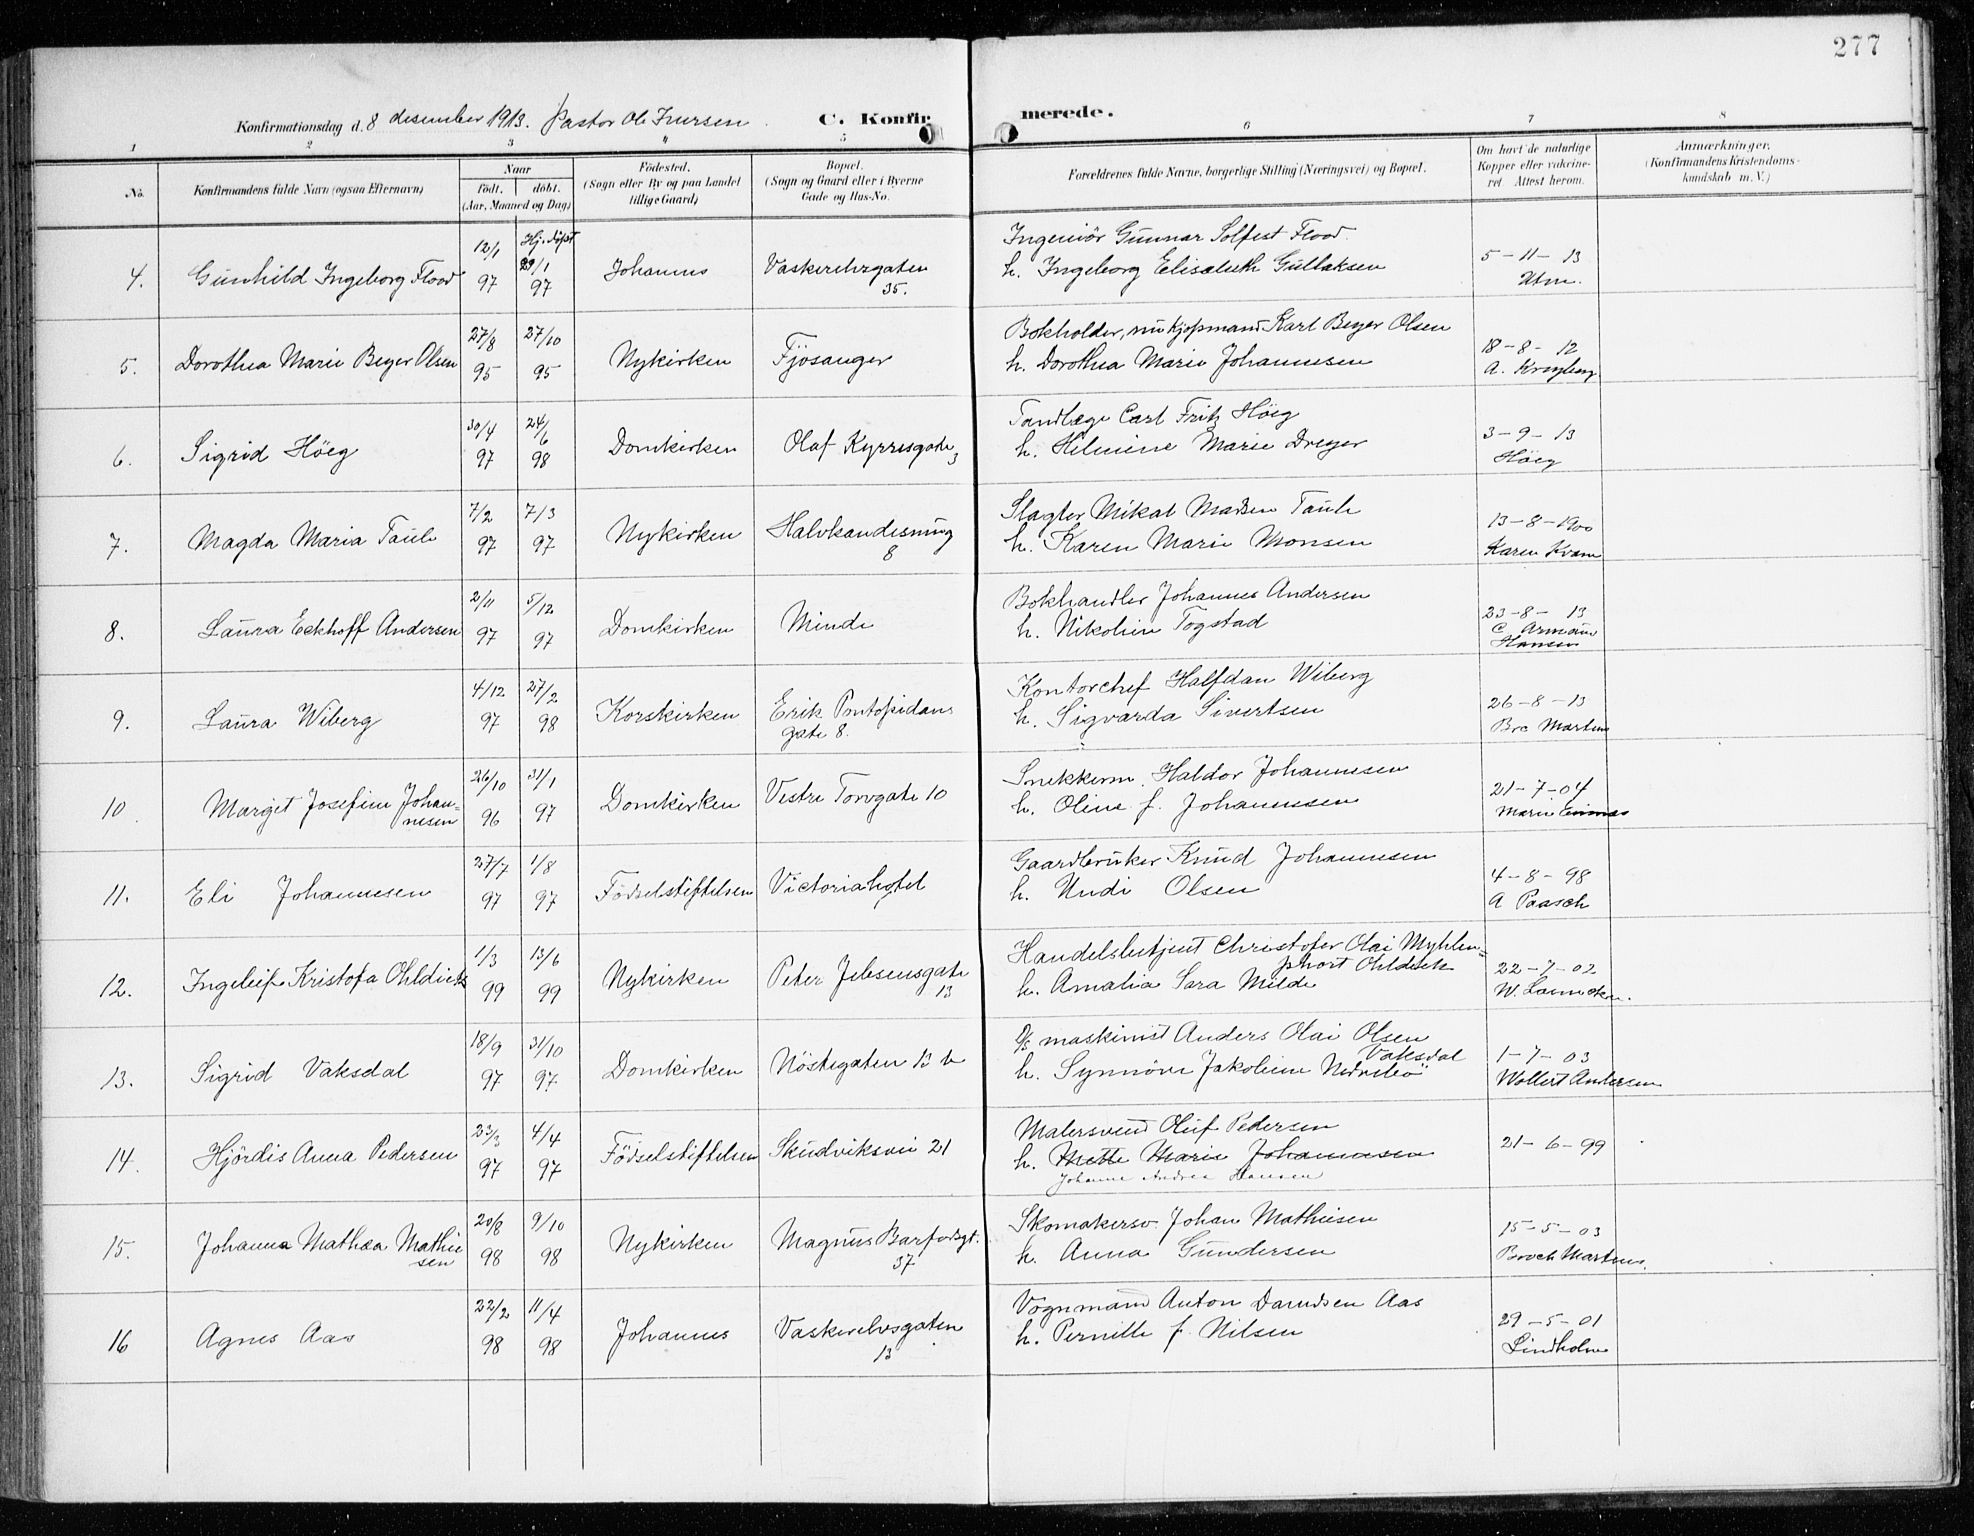 277
Konfirmationsdag d. 8 desember 1913. Pastor Ole Iversen C. Konfirmerede.
1 2 3 4 5 6 7 8
No.
Konfirmandens fulde Navn (ogsaa Efternavn)
Naar
født. døbt.
(Aar, Maaned og Dag)
Födested.
(Sogn eller By og paa Landet
tillige Gaard)
Bopæl.
(Sogn og Gaard eller i Byerne
Gade og Hus-No.
Forældrenes fulde Navne, borgerlige Stilling (Næringsvei) og Bopæl.
Om havt de naturlige
Kopper eller vakcine-
ret. Attest herom.
Anmærkninger.
(Konfirmandens Kristendoms-
kundskab m. V.)
4. Gunhild Ingeborg Flood 12/1 97 Hj. døpt 29/1 97 Johannes Vaskerelvgaten 35.
Ingeniør Gunnar Solfest Flood
h. Ingeborg Elisabeth Gullaksen
5-11-13
5. Dorothea Marie Beyer Olsen 27/8 95 27/10 95 Nykirken Fjösanger
Bokholder, nu kjøpmand Karl Beyer Olsen
h. Dorothea Marie Johannesen
18-8-12
A.
6. Sigrid Höeg 30/4 97 24/6 98 Domkirken Olaf Kyrresgate 3
Tandlæge Carl Fritz Höeg
h. Helmine Marie Dreyer
3-9-13
Höeg
7. Magda Maria Taule 7/2 97 7/3 97 Nykirken Halvkandesmug 8
Slagter Mikal Madsen Taule
h. Karen Marie Monsen
13-8-1900
Karen Kvam
8. Laura Eckhoff Andersen 2/11 97 5/12 97 Domkirken Minde
Bokhandler Johannes Andersen
h. Nikoline Togstad
23-8-13
C. Armauer
Hansen
9. Laura Wiberg 4/12 97 27/2 98 Korskirken Erik Pontopidans
gate 8.
Kontorchef Halfdan Wiberg
h. Sigvarda Sivertsen
26-8-13
Bro Martens
10 Marget Josefine Johan=
nesen 26/10 96 31/1 97 Domkirken Vestre Torvgate 10
Snekkerm. Haldor Johannesen
h. Oline f. Johannesen
21-7-04
Marie
11. Eli Johannesen 27/7 97 1/8 97 Födselstiftelsen Victoria hotel
Gaardbruker Knud Johannesen
h. Undi Olsen
4-8-98
A Paasch
12. Ingeleif Kristofa Ohldieck 1/3 99 13/6 99 Nykirken Peter Jebsensgate 13
Handelsbetjent Christofer Olai Myhlen=
phort Ohldieck
h. Amalia Sara Milde
22-7-02
W.
13. Sigrid Vaksdal 18/9 97 31/10 97 Domkirken Nöstegaten 13 b
D/S maskinist Anders Olai Olsen
Vaksdal
h. Synnöve Jakobine
1-7-03
Wollert Andersen
14. Hjördis Anna Pedersen 23/3 97 4/4 97 Födselstiftelsen Skudviksvei 21
Malersvend Oluf Pedersen
h. Mette Marie Johannesen
Johanne Andrea Hansen
21-6-99
15. Johanna Mathea Mathie
sen 20/8 98 9/10 98 Nykirken Magnus Barfodsgt. 37
Skomakersv. Johan Mathiesen
h. Anna Gundersen
15-5-03
Broch Martens.
16 Agnes Aas 22/2 98 11/4 98 Johannes Vaskerelvsgaten 13
Vognmand Anton Davidsen Aas
h. Pernille f. Nilsen
29-5-01
Lindholm